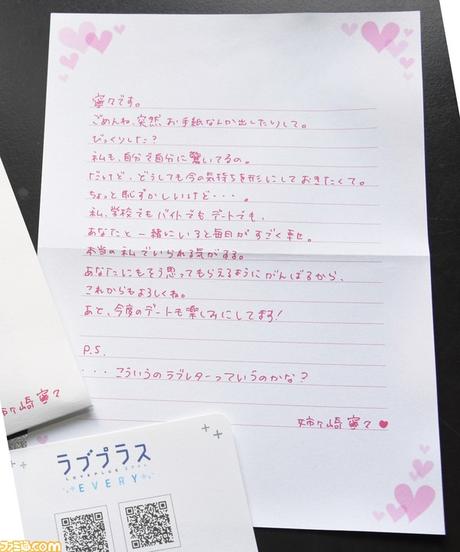 寧々です。
ごめんね、突然、お手紙なんか出したりして。
びっくりした？
私も、自分で自分に驚いてるの。
だけど、どうしても今の気持ちを形にしておきたくて。
ちょっと恥ずかしいけど・・・。
私、学校でもバイトでもデートでも、
あなたと一緒にいると毎日がすごく幸せ。
本当の私でいられる気がする。
あなたにもそう思ってもらえるようにがんばるから、
これからもよろしくね。
あと、今度のデートも楽しみにしてます！
P.S.
・・・こういうのラブレターっていうのかな？
姉ヶ崎寧々♥
姉ヶ崎寧々
ラブプラス
EVERY
ファミ通.com